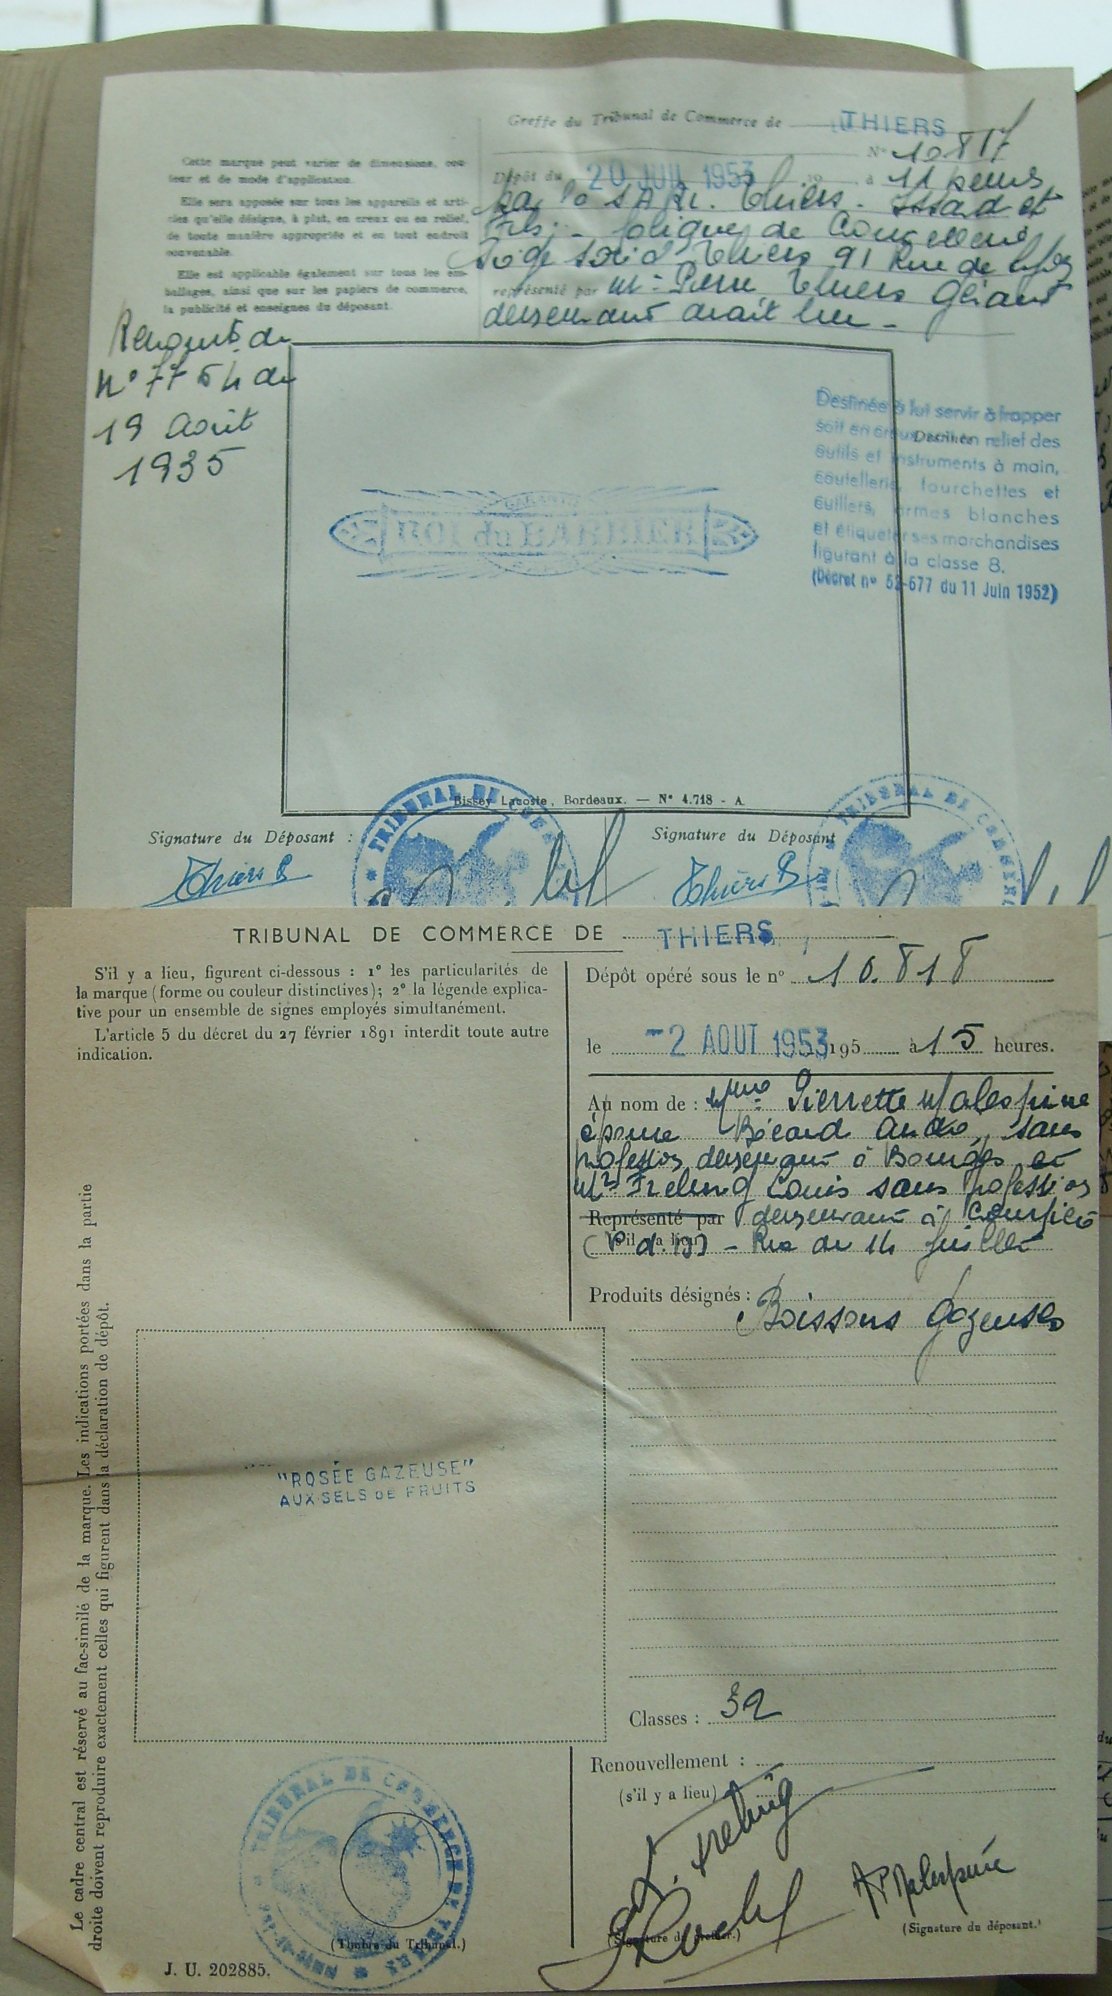 Greffe du Tribunal de Commerce de THIERS
N° 10817
Dépôt du 20 JUIL 1953 19 à 11 heures
par la SARL. Thiers - Issard et
Fils - de
Siège social Thiers 91 Rue de
représenté par Mr Pierre Thiers Gérant
demeurant dudit lieu -
Cette marque peut varier de dimensions, cou-
leur et de mode d'application.
Elle sera apposée sur tous les appareils et arti-
cles qu'elle désigne, à plat, en creux ou en relief,
de toute manière appropriée et en tout endroit
convenable.
Elle est applicable également sur tous les em-
ballages, ainsi que sur les papiers de commerce,
la publicité et enseignes du déposant.
du
N° 7754 du
19 Août
1935
GARANTI
ROI du BARBIER
Destinée à lui servir à frapper
soit en creux, soit en relief des
outils et instruments à main,
coutellerie, fourchettes et
cuillers, armes blanches
et étiqueter ses marchandises
figurant à la classe 8.
(Décret n° 52-677 du 11 Juin 1952)
Destinée
Bissey Lacoste, Bordeaux. — N° 4.718 - A
Signature du Déposant :
Signature du Déposant
Thiers P
Thiers P
TRIBUNAL DE
TRIBUNAL DE
TRIBUNAL DE COMMERCE DE THIERS
S'il y a lieu, figurent ci-dessous : 1° les particularités de
la marque (forme ou couleur distinctives) ; 2° la légende explica-
tive pour un ensemble de signes employés simultanément.
L'article 5 du décret du 27 février 1891 interdit toute autre
indication.
Dépôt opéré sous le n° 10.818
le -2 AOUT 1953 195 à 15 heures.
Au nom de : Mme Pierrette Malespine
épouse Bécard André, sans
profession demeurant à Bourges et
Mr Frelung Louis sans profession
Représenté par demeurant à Courpière
(s'il y a lieu) (P. d. D) - Rue du 14 Juillet
Produits désignés :
Boissons Gazeuses
"ROSÉE GAZEUSE"
AUX SELS DE FRUITS
Le cadre central est réservé au fac-similé de la marque. Les indications portées dans la partie
droite doivent reproduire exactement celles qui figurent dans la déclaration de dépôt.
Classes : 32
Renouvellement :
(s'il y a lieu)
TRIBUNAL DE COMMERCE DE THIERS
(Timbre du Tribunal.)
(Signature du greffier.)
(Signature du déposant.)
J. U. 202885.